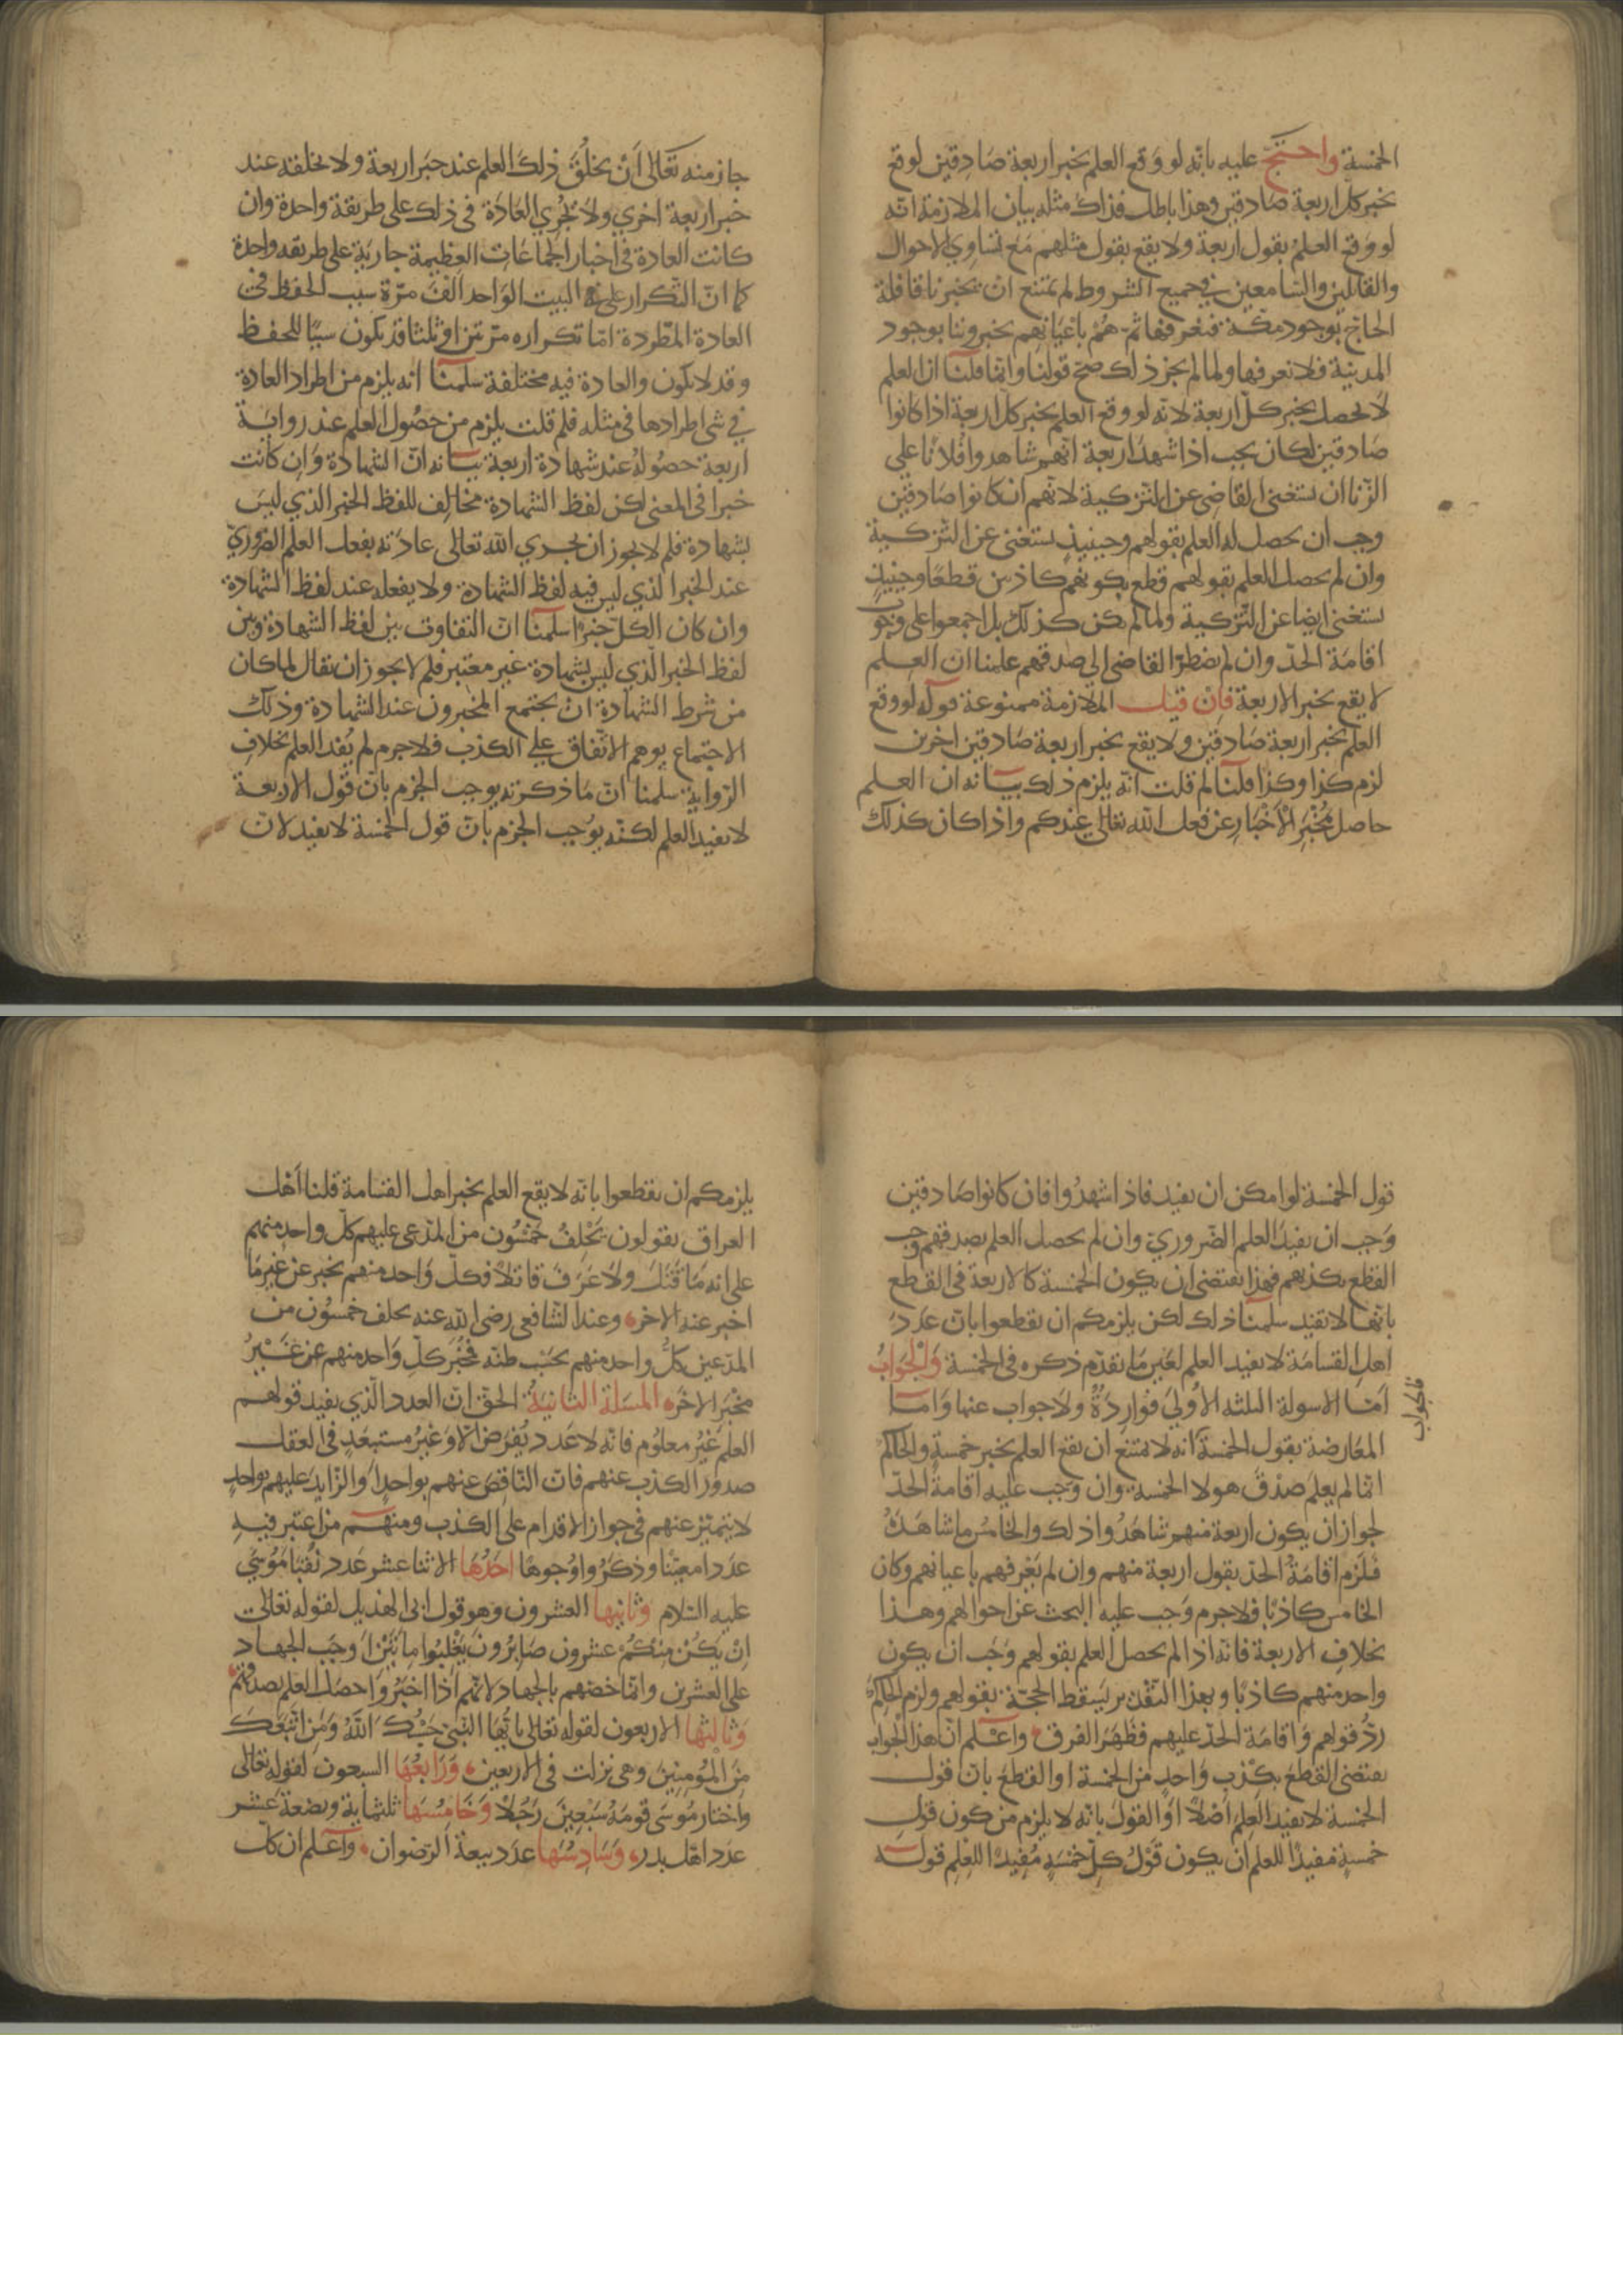 الخمسة واحتج عليه بانه لو وقع العلم بخبر اربعة صَادِقين لوقع
بخبر كل اربعة صَادقين وهذا باطل فذاك مثله بيان الملازمة انه
لو وقع العلم بقول اربعة ولا يقع بقول مثلهم مع تساوي الاحوال
والقائلين والسامعين في جميع الشروط لم يمتنع ان يخبرنا قافلة
الحاج بوجود مكة فنعرفها ثم هُمْ باعيانهم يخبروننا بوجود
المدينة فلا نعرفها ولما لم يجز ذلك صح قولنا وانما قلنا ان العلم
لا يحصل بخبر كل اربعة لانه لو وقع العلم بخبر كل اربعة اذا كانوا
صَادقين لكان يجب اذا شهد اربعة انهم شاهدوا فلانا على
الزنا ان يستغنى القاضى عن التزكية لانهم ان كانوا صَادقين
وجب ان يحصل له العلم بقولهم وحينيذ يستغنى عن التزكية
وان لم يحصل العلم بقولهم قطع بكونهم كاذبين قطعًا وحينيذ
يستغنى ايضا عن التزكية ولما لم يكن كذلك بل اجمعوا على وجوب
اقامة الحدّ وان لم يضطر القاضى الى صدقهم علمنا ان العلم
لا يقع بخبر الاربعة فان قيل الملازمة ممنوعة قوله لو وقع
العلم بخبر اربعة صَادقين ولا يقع بخبر اربعة صَادقين اخرين
لزم كذا وكذا قلنا لم قلت انه يلزم ذلك بيانه ان العلم
حاصل مُخْبَرِ الاَخْبَارِ عن فعل الله تعالى عندكم واذا كان كذلك
جاز منه تَعَالى اَنْ يخلُقَ ذلك العلم عند خبر اربعة ولا يخلقه عند
خبر اربعة اخري ولا تجْري العَادَة فى ذلك على طريقة واحدة وان
كانت العادة فى اخبار الجماعَات العظيمة جارية على طريقه واحدة
كما انّ التكرار على البيت الوَاحد الفَ مرّة سبب الحفظ فى
العادة المطّردة امّا تكراره مرّتين او ثلثا فقد يكون سببًا للحفظ
وقد لا يكون والعادة فيه مختلفة سلمنا انه يلزم من اطراد العادة
في شى اطرادها فى مثله فلم قلت يلزم من حصُول العلم عند رواية
اربعة حصُولهُ عند شهادة اربعة بيانه انّ الشهادة وَان كانت
خبرا فى المعنى لكن لفظ الشهادة مخالف للفظ الخبر الذي ليسَ
بشهادة فلم لا يجوز ان يجري الله تعالى عادَته بفعل العلم الضروريّ
عند الخبر الذي ليس فيه لفظ الشهادة ولا يفعله عند لفظ الشهادة
وان كان الكلّ خبرًا سلمنا انّ التفاوت بين لفظ الشهادة وبين
لفظ الخبر الّذي ليس بشهادة غير معتبر فلم لا يجوز ان يقال لما كان
من شرط الشهادة ان يجتمع المخبرون عند الشهادة وذلك
الاجتماع يوهم الاتّفاق علي الكذب فلا جرم لم يُفد العلم بخلاف
الرّواية سلمنا انّ مَا ذكرته يوجب الجزم بانّ قول الاربعة
لا يفيد العلم لكنه يوُجب الجزم بانّ قول الخمسة لا يفيد لانّ
قول الخمسة لو امكن ان يفيد فاذا شهدُوا فان كانوا صَادقين
وَجب ان يفيدَ العلم الضّروريّ وان لم يحصل العلم بصدقهم وجب
القطع بكذبهم فهذا يقتضى ان يكون الخمسة كالاربعة فى القطع
بانها لا تفيد سلمنا ذلك لكن يلزمكم ان تقطعوا بانّ عَدَدَ
اهل القسَامَة لا يفيد العلم لغير مَا تقدّم ذكره فى الخمسة وَالْجَوَابُ
فالجواب
اَمّا الاسولة الثلثه الاُولى فوارِدَةٌ ولا جواب عنها وَاما
المعَارضة بقول الخمسة انه لا يمتنع ان يقع العلم بخبر خمسةٍ والحاكم
انما لم يعلم صدقَ هولا الخمسة وان وَجب عليه اقامةُ الحدّ
لجواز ان يكون اربعة منهم شاهَدُوا ذلك والخامسُ ما شاهَدَهُ
فلزم اقامةُ الحدّ بقول اربعة منهم وان لم يَعْرفهم باعيانهم وكان
الخامس كاذبًا فلا جرم وَجب عليه البحث عن احوالهم وهذا
بخلاف الاربعة فانّه اذا لم يحصل العلم بقولهم وَجَب ان يكون
واحد منهم كاذبًا وبهذا التقدير يَسقط الحجّة بقولهم ولزم الحاكمَ
رَدُّ قولهم وَاقامَة الحدّ عليهم فظَهَرَ الفرق واعلم انّ هذا الجوابَ
يقتضى القطعَ بكذبِ وَاحدٍ من الخمسة او القطعَ بانّ قول
الخمسة لا يفيدُ العِلمَ اَصْلاً اَو القولَ بانّه لا يلزم من كون قولِ
خمسةٍ مفيدًا للعلم ان يكون قَوْلُ كلّ خمْسَةٍ مُفِيدًا للعِلم قوله
يلزمكم ان تقطعوا بانّه لا يقع العلم بخبر اهل القسَامة قلنا اَهْل
العراق يقولون يَحْلفُ خَمْسُون من المدّعى عليهم كلّ واحدٍ منهم
على انه مَا قَتَلَ ولا عَرَفَ قاتلًا فكلّ وَاحد منهم يخبر عن غير مَا
اخبر عنه الاخر وعند الشافعى رضى الله عنه يحلف خمسُون من
المدّعين كلُّ واحد منهم بحسب ظنّه فمُخْبَرُ كلّ وَاحد منهم عن غَيْرُ
مخْبَر الاخر المسَلة الثانيَةُ الحقّ انّ العدد الّذي يفيد قولهم
العلم غَيْرُ معلوُم فانّه لا عَدد يُفرَض الاّ وَغيرُ مستبعَدٍ فى العقل
صدورُ الكذب عنهم فانّ النّاقصَ عنهم بواحدٍ اَو الزّايدَ عليهم بواحدٍ
لا يتميّز عنهم فى جواز الاقدام على الكذب ومنهم من اعتبر فيه
عدَدا معيّنًا وذكرُوا وُجوهًا احَدُهَا الاثنا عشر عَدد نُقبَا مُوسَي
عليه السّلام وَثانيها العشرون وهو قول ابى الهذيل لقوله تعَالى
اِنْ يَكُنْ مِنكُمْ عشرون صَابرُونَ يَغْلِبُوا مِائَتَيْنِ اَوجَب الجهَاد
على العشرين وانمّا خصّهم بالجهاد لانّهم اذا اخبَرُوا حصل العلم بصدقهم
وَثالثها الاربعون لقوله تعالى يا ايّهَا النَّبِىّ حَسْبُكَ اللّهُ وَمَنِ اتَّبَعَكَ
مِنَ الْمُوْمِنينَ وهى نزلت فى الاربعين وَرَابعُهَا السبعون لقوله تعالى
واختار مُوسَى قومَهُ سَبْعِينَ رَجُلًا وَخَامِسُهَا ثلثماية وبضعة عشر
عدَد اهل بدر وَسَادِسُهَا عدَد بيعة الرّضوان واعلم ان كلّ